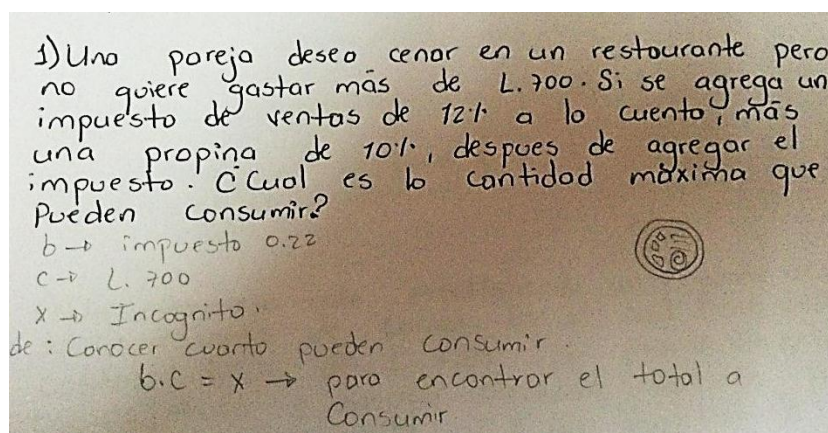 1) Una pareja desea cenar en un restaurante pero
no quiere gastar más de L. 700. Si se agrega un
impuesto de ventas de 12% a la cuenta, más
una propina de 10%, despues de agregar el
impuesto. ¿Cual es la cantidad máxima que
Pueden consumir?
b → impuesto 0.22
c → L. 700
x → Incognita.
de: Conocer cuanto pueden consumir.
b.c = x → para encontrar el total a
Consumir